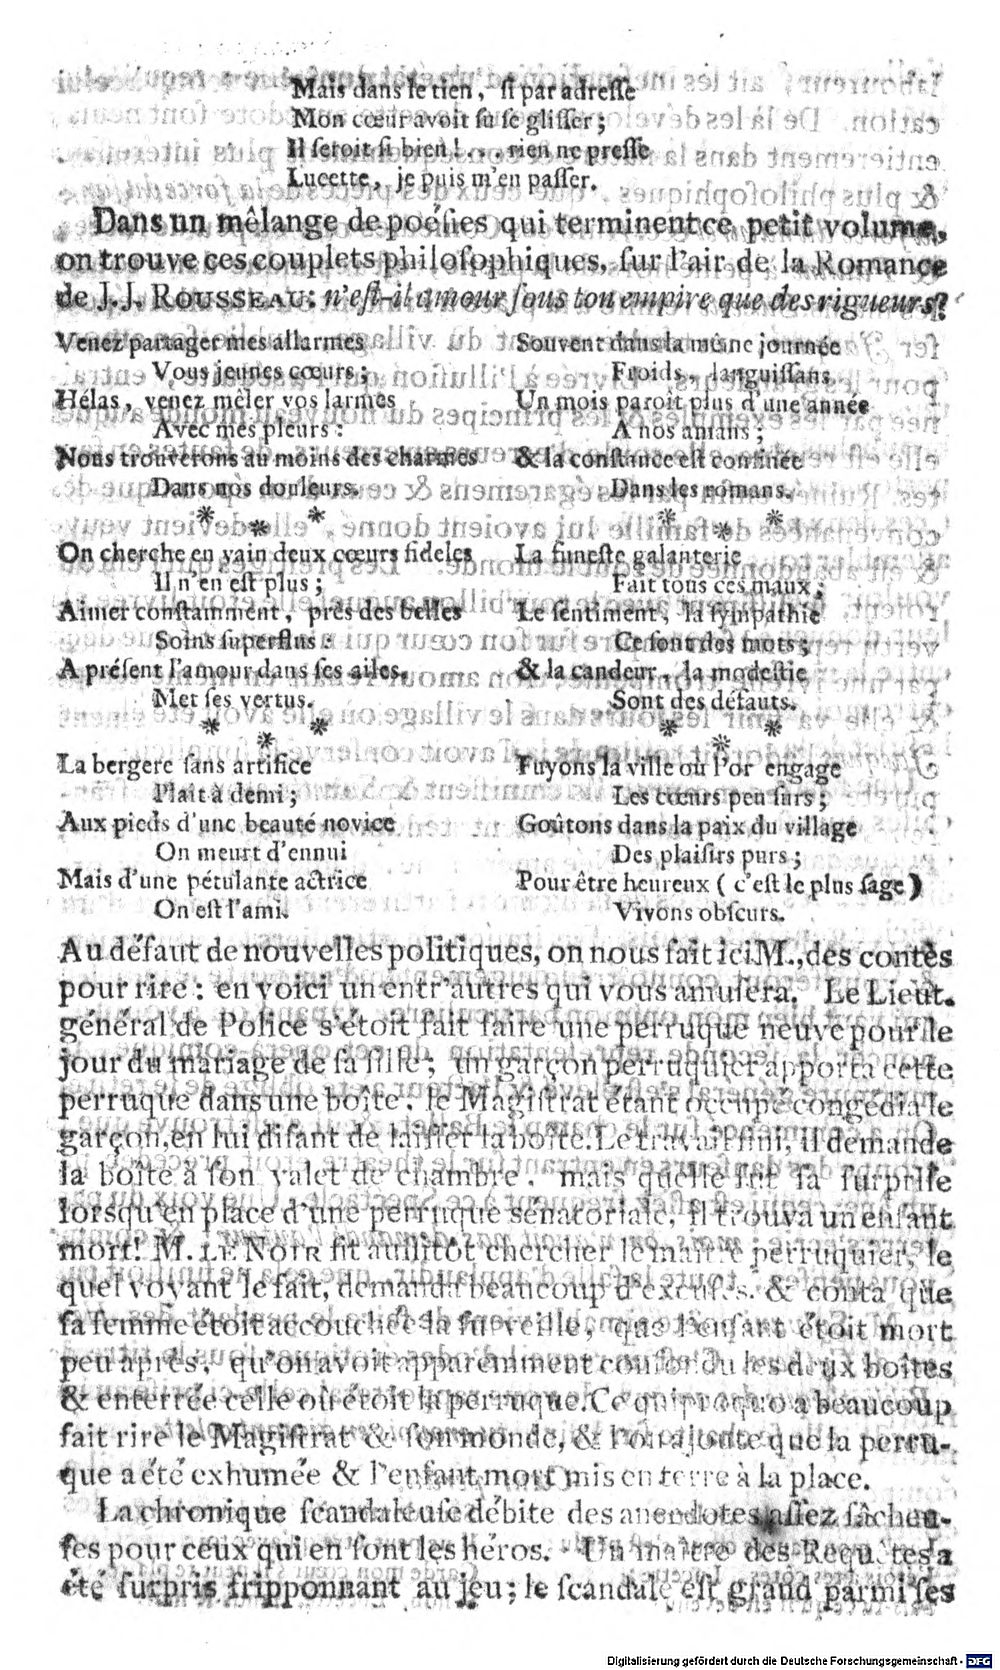 Mais dans le tien, si par adresse
Mon cœur avoit su se glisser;
Il seroit si bien!... rien ne presse
Lucette, je puis m'en passer.
Dans un mêlange de poésies qui terminent ce petit volume,
on trouve ces couplets philosophiques, sur l'air de la Romance
de J. J. ROUSSEAU: n'est-il amour sous ton empire que des rigueurs?
Venez partager mes allarmes
Vous jeunes cœurs;
Hélas, venez mêler vos larmes
Avec mes pleurs:
Nous trouverons au moins des charmes
Dans nos douleurs.
* * *
On cherche en vain deux cœurs fideles
Il n'en est plus;
Aimer constamment, prés des belles
Soins superflus:
A présent l'amour dans ses ailes,
Met ses vertus.
* * *
La bergere sans artifice
Plait à demi;
Aux pieds d'une beauté novice
On meurt d'ennui
Mais d'une pétulante actrice
On est l'ami.
Souvent dans la même journée
Froids, languissans
Un mois paroit plus d'une année
A nos amans;
& la constance est confinée
Dans les romans.
* * *
La funeste galanterie
Fait tous ces maux;
Le sentiment, la sympathie
Ce sont des mots;
& la candeur, la modestie
Sont des défauts.
* * *
Fuyons la ville où l'or engage
Les cœurs peu surs;
Goûtons dans la paix du village
Des plaisirs purs;
Pour être heureux (c'est le plus sage)
Vivons obscurs.
Au défaut de nouvelles politiques, on nous fait ici M., des contès
pour rire: en voici un entr'autres qui vous amusera. Le Lieut.
général de Police s'étoit fait faire une perruque neuve pour le
jour du mariage de sa fille; un garçon perruquier apporta cette
perruque dans une boîte, le Magistrat étant occupé congédia le
garçon, en lui disant de laisser la boîte. Le travail fini, il demande
la boîte à son valet de chambre, mais quelle fut sa surprise
lorsqu'en place d'une perruque sénatoriale, il trouva un enfant
mort! M. LE NOIR fit aussitôt chercher le maître perruquier, le
quel voyant le fait, demanda beaucoup d'excuses & conta que
sa femme étoit accouchée la surveille, que l'enfant étoit mort
peu après, qu'on avoit apparemment confondu les deux boîtes
& enterrée celle où étoit la perruque. Ce quiproquo a beaucoup
fait rire le Magistrat & son monde, & l'on ajoute que la perru-
que a été exhumée & l'enfant mort mis en terre à la place.
La chronique scandaleuse débite des anecdotes assez fâcheu-
ses pour ceux qui en sont les héros. Un maître des Requêtes a
été surpris fripponnant au jeu; le scandale est grand parmi ses
Digitalisierung gefördert durch die Deutsche Forschungsgemeinschaft - DFG